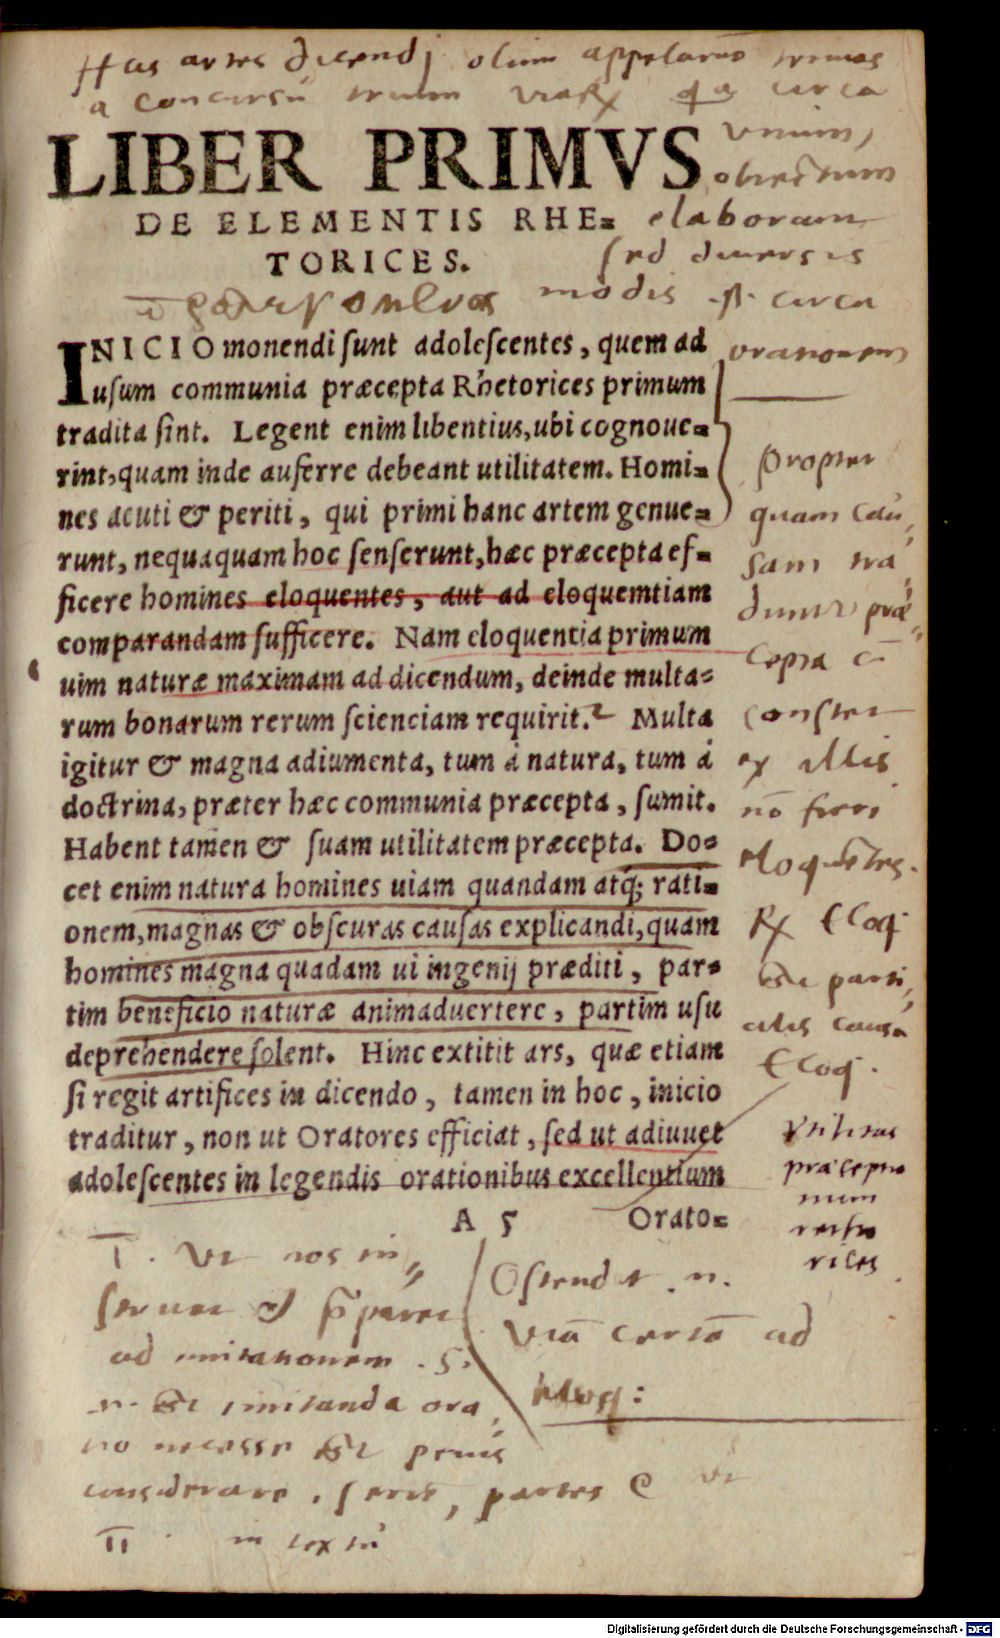 Has artes dicendj olim appelarūt trivias
a concursū trium viaRx q̄ a circa
unum,
LIBER PRIMVS
obiectum
DE ELEMENTIS RHE=
elaborant
TORICES.
sed diuersis
modis .s. circa
orationem
INICIO monendi sunt adolescentes, quem ad
usum communia præcepta Rhetorices primum
tradita sint. Legent enim libentius, ubi cognoue=
rint, quam inde auferre debeant utilitatem. Homi=
nes acuti & periti, qui primi hanc artem genue=
runt, nequaquam hoc senserunt, hæc præcepta ef=
ficere homines eloquentes, aut ad eloquemtiam
comparandam sufficere. Nam eloquentia primum
uim naturæ maximam ad dicendum, deinde multa=
rum bonarum rerum scienciam requirit. Multa
igitur & magna adiumenta, tum à natura, tum à
doctrina, præter hæc communia præcepta, sumit.
Habent tamen & suam utilitatem præcepta. Do=
cet enim natura homines uiam quandam atq; rati=
onem, magnas & obscuras causas explicandi, quam
homines magna quadam ui ingenij præditi, par=
tim beneficio naturæ animaduertere, partim usu
deprehendere solent. Hinc extitit ars, quæ etiam
si regit artifices in dicendo, tamen in hoc, inicio
traditur, non ut Oratores efficiat, sed ut adiuuet
adolescentes in legendis orationibus excellentium
A 5 Orato=
propter
quam cau,
sam tra,
duntur præ,
cepta cū
constet
ex illis
nō fieri
eloquētes.
Rx Eloq
est parti,
culis causa
Eloq.
Vtilitas
præcepto
rum
rheto
rices
I. Vt nos in,,
struat et p̄paret
ad imitationem .S.
n. est imitanda ora,
tio necesse est prius
considerare . serie, partes
II in textū
Ostendit .n.
viā certā ad
eloq:
Digitalisierung gefördert durch die Deutsche Forschungsgemeinschaft - DFG